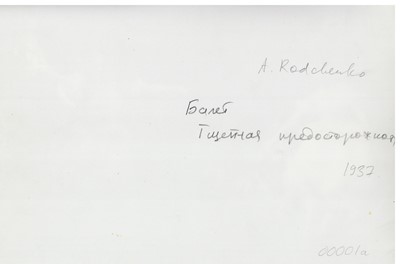 A. Rodchenko
Балет
Тщетная предосторожнос
1937
00001a